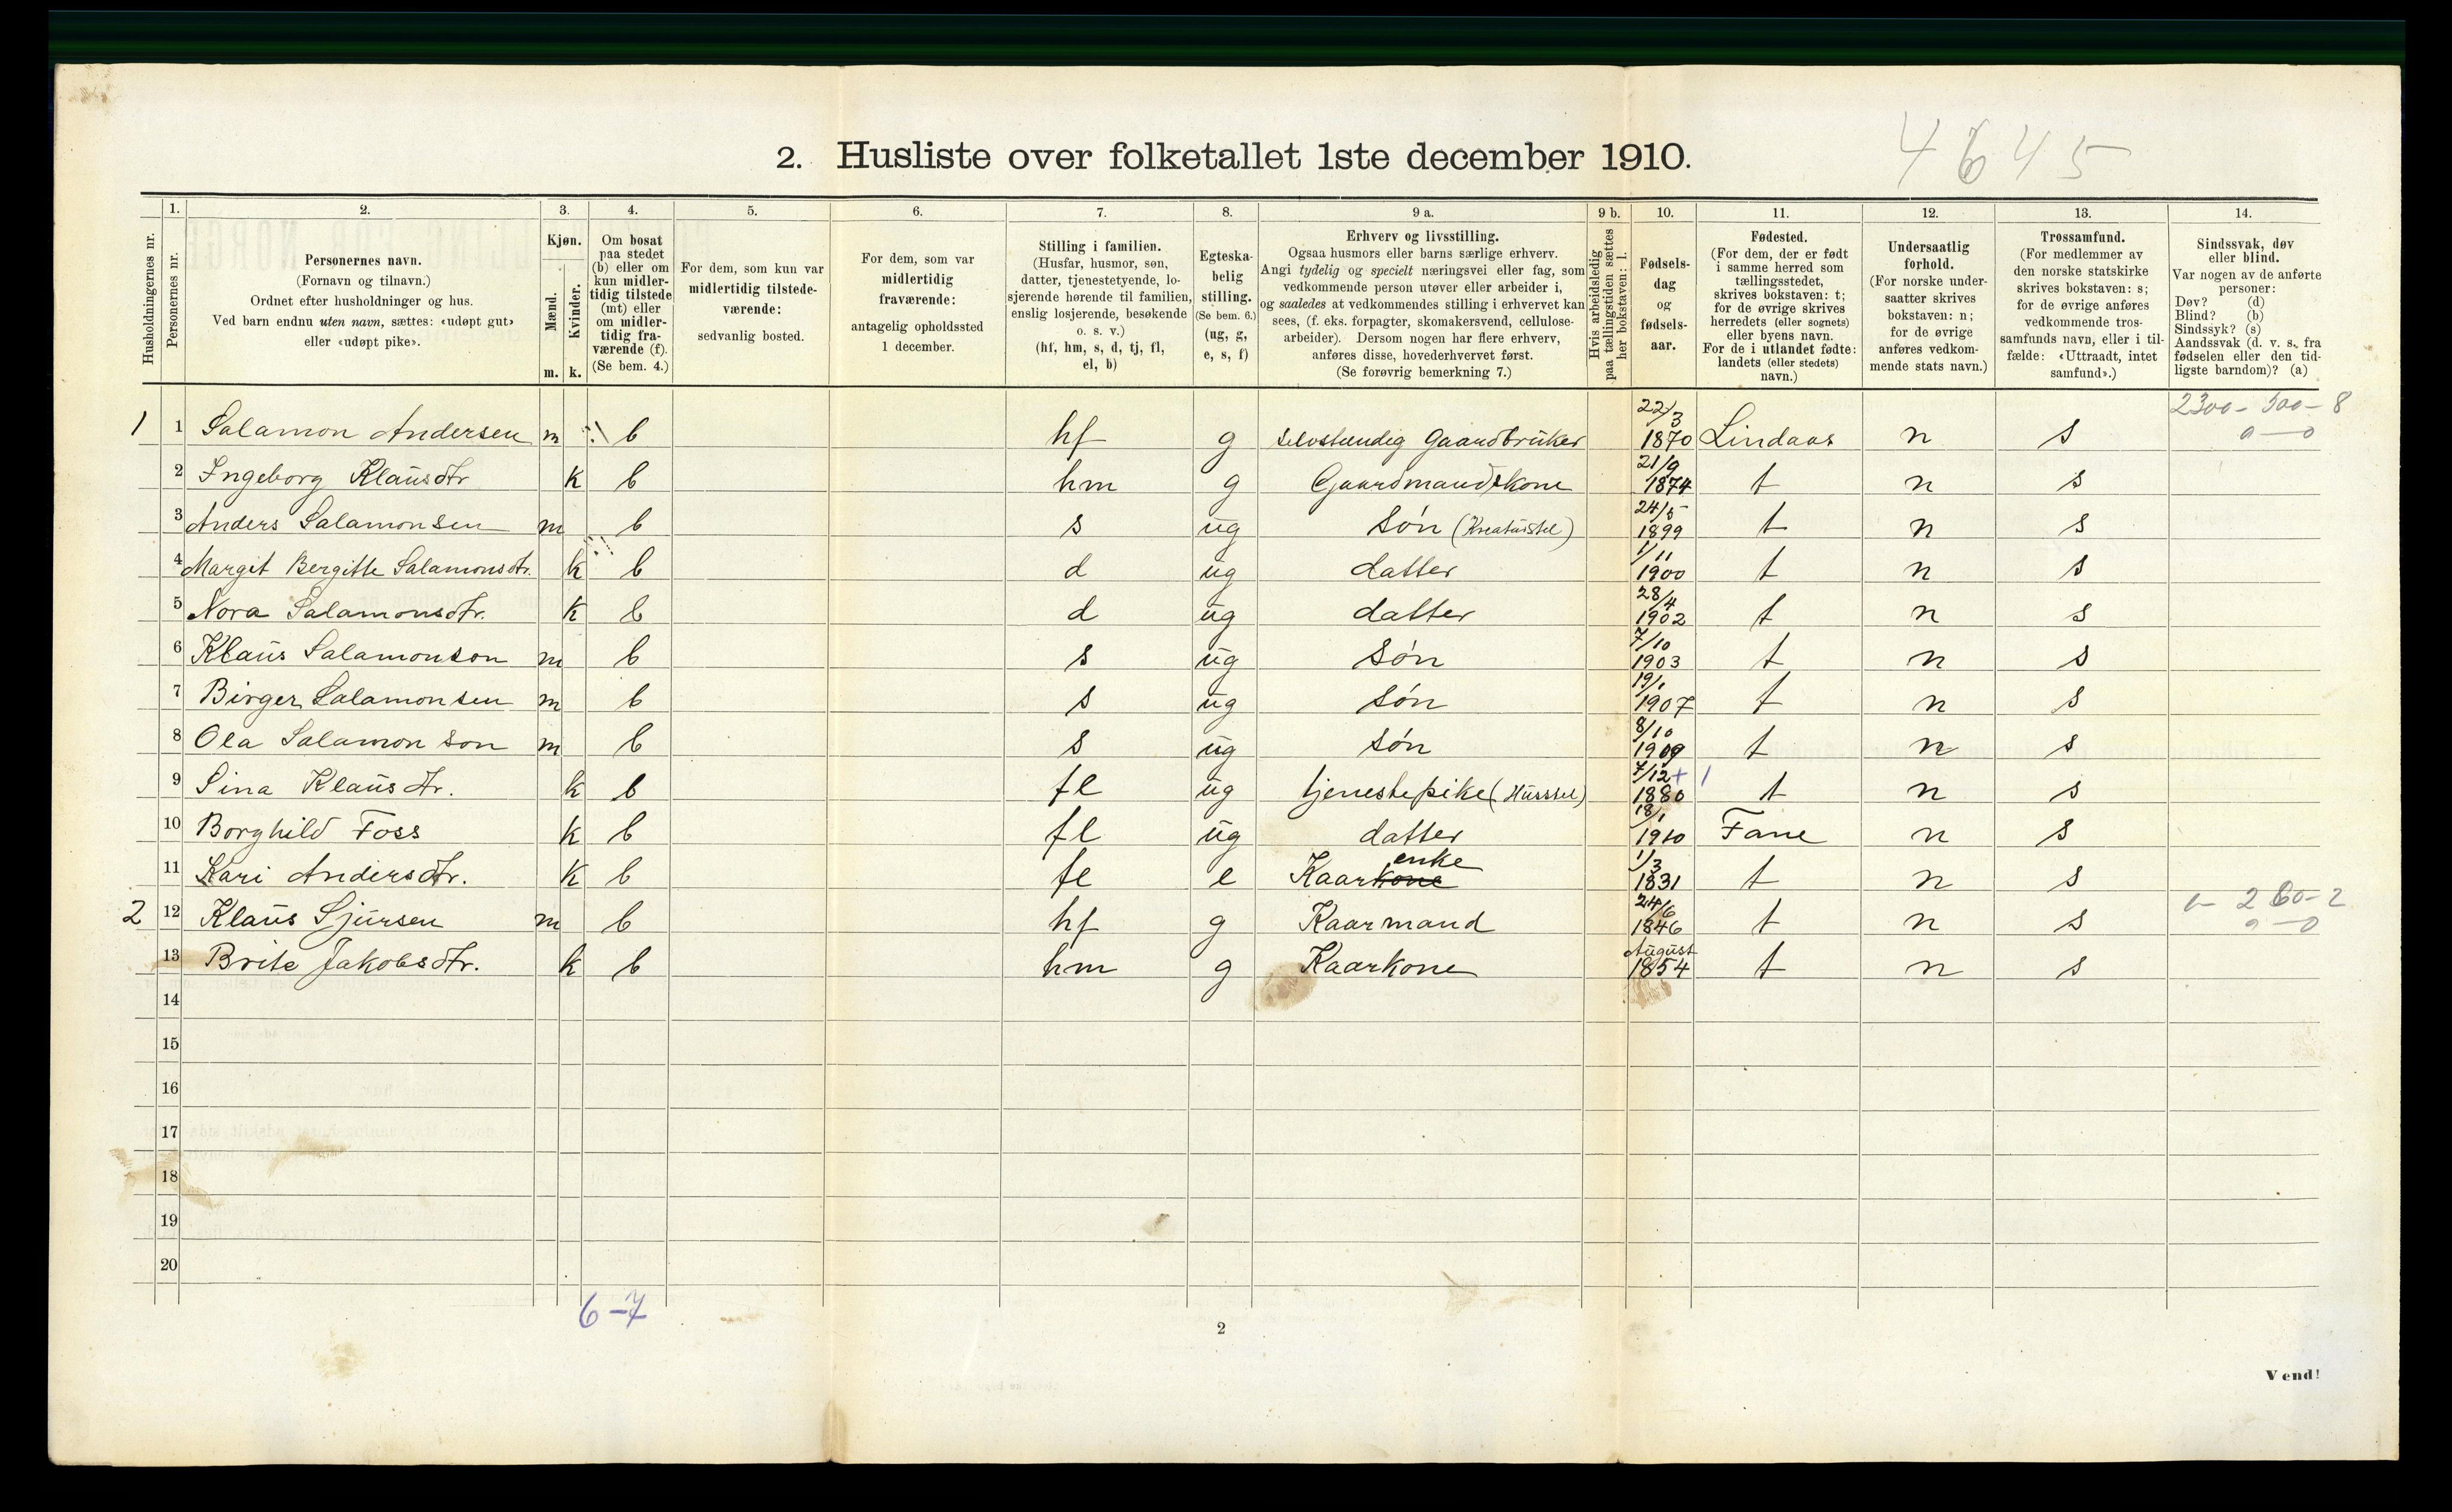 4645
2. Husliste over folketallet 1ste december 1910.
Husholdningernes nr.
1. Personernes nr.
2. Personernes navn.
(Fornavn og tilnavn.)
Ordnet efter husholdninger og hus.
Ved barn endnu uten navn, sættes: «udøpt gut»
eller «udøpt pike».
3. Kjøn.
Mænd. Kvinder.
m. k.
4. Om bosat
paa stedet
(b) eller om
kun midler-
tidig tilstede
(mt) eller
om midler-
tidig fra-
værende (f).
(Se bem. 4.)
5. For dem, som kun var
midlertidig tilstede-
værende:
sedvanlig bosted.
6. For dem, som var
midlertidig
fraværende:
antagelig opholdssted
1 december.
7. Stilling i familien.
(Husfar, husmor, søn,
datter, tjenestetyende, lo-
sjerende hørende til familien,
enslig losjerende, besøkende
o. s. v.)
(hf, hm, s, d, tj, fl,
el, b)
8. Egteska-
belig
stilling.
(Se bem. 6.)
(ug, g,
e, s, f)
9 a. Erhverv og livsstilling.
Ogsaa husmors eller barns særlige erhverv.
Angi tydelig og specielt næringsvei eller fag, som
vedkommende person utøver eller arbeider i,
og saaledes at vedkommendes stilling i erhvervet kan
sees, (f. eks. forpagter, skomakersvend, cellulose-
arbeider). Dersom nogen har flere erhverv,
anføres disse, hovederhvervet først.
(Se forøvrig bemerkning 7.)
9 b. Hvis arbeidsledig
paa tællingstiden sættes
her bokstaven: l.
10. Fødsels-
dag
og
fødsels-
aar.
11. Fødested.
(For dem, der er født
i samme herred som
tællingsstedet,
skrives bokstaven: t;
for de øvrige skrives
herredets (eller sognets)
eller byens navn.
For de i utlandet fødte:
landets (eller stedets)
navn.)
12. Undersaatlig
forhold.
(For norske under-
saatter skrives
bokstaven: n;
for de øvrige
anføres vedkom-
mende stats navn.)
13. Trossamfund.
(For medlemmer av
den norske statskirke
skrives bokstaven: s;
for de øvrige anføres
vedkommende tros-
samfunds navn, eller i til-
fælde: «Uttraadt, intet
samfund».)
14. Sindssvak, døv
eller blind.
Var nogen av de anførte
personer:
Døv? (d)
Blind? (b)
Sindssyk? (s)
Aandssvak (d. v. s. fra
fødselen eller den tid-
ligste barndom)? (a)
1 1 Salamon Andersen m b hf g selvstændig Gaardbruker 22/3 1870 Lindaas n s 2300 - 300 - 8 0 — 0
2 Ingeborg Klausdtr k b hm g Gaardmandskone 21/9 1874 t n s
3 Anders Salamonsen m b s ug søn (Kreaturstel) 24/5 1899 t n s
4 Margit Bergitte Salamonsdtr. k b d ug datter 1/11 1900 t n s
5 Nora Salamonsdtr. k b d ug datter 28/4 1902 t n s
6 Klaus Salamonson m b s ug søn 7/10 1903 t n s
7 Birger Salamonsen m b s ug søn 19/1 1907 t n s
8 Ola Salamonson m b s ug søn 8/10 1909 t n s
9 Sina Klausdtr. k b fl ug tjenestepike (Husstel) 7/12 1880 t n s
10 Borghild Foss k b fl ug datter 18/1 1910 Fane n s
11 Kari Andersdtr. k b fl e Kaarkone enke 1/3 1831 t n s
2 12 Klaus Sjursen m b hf g Kaarmand 24/6 1846 t n s 0 - 260 - 2 0 — 0
13 Brite Jakobsdtr. k b hm g Kaarkone August 1854 t n s
14
15
16
17
18
19
20
6-7
2
Vend!